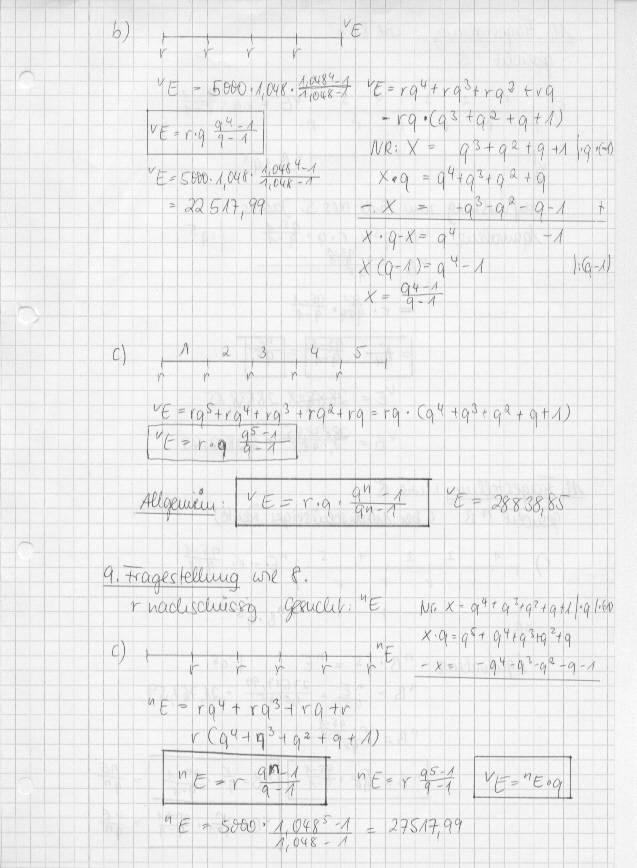 b) ᵛE
r r r r
ᵛE = 5000·1,048·(1,048⁴−1)/(1,048−1)
ᵛE = r·q (q⁴−1)/(q−1)
ᵛE = 5000·1,048·(1,048⁴−1)/(1,048−1)
= 22517,99
ᵛE = rq⁴ + rq³ + rq² + rq
− rq·(q³ + q² + q + 1)
NR: X = q³ + q² + q + 1 |·q·(−1)
X·q = q⁴ + q³ + q² + q
− X = −q³ − q² − q − 1 +
X·q − X = q⁴ − 1
X(q−1) = q⁴ − 1 |:(q−1)
X = (q⁴−1)/(q−1)
c) 1 2 3 4 5
r r r r r
ᵛE = rq⁵ + rq⁴ + rq³ + rq² + rq = rq·(q⁴ + q³ + q² + q + 1)
ᵛE = r·q (q⁵−1)/(q−1)
Allgemein: ᵛE = r·q·(qⁿ−1)/(qⁿ−1) ᵛE = 28838,85
9. Fragestellung wie 8.
r nachschüssig gesucht: ⁿE
Nr. X = q⁴ + q³ + q² + q + 1 |·q
X·q = q⁵ + q⁴ + q³ + q² + q
− X = −q⁴ − q³ − q² − q − 1
c) ⁿE
r r r r r
ⁿE = rq⁴ + rq³ + rq + r
r (q⁴ + q³ + q² + q + 1)
ⁿE = r (qⁿ−1)/(q−1) ⁿE = r (q⁵−1)/(q−1) ᵛE = ⁿE·q
ⁿE = 5000·(1,048⁵−1)/(1,048−1) = 27517,99